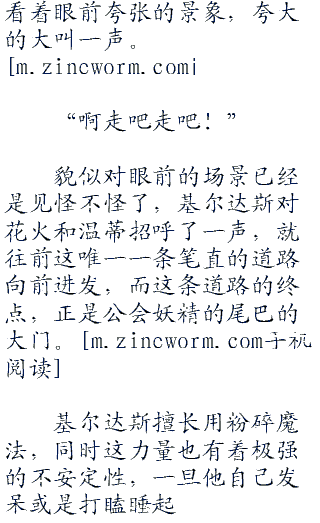 看着眼前夸张的景象，夸大
的大叫一声。
[m.zincworm.com]
“啊走吧走吧！”
貌似对眼前的场景已经
是见怪不怪了，基尔达斯对
花火和温蒂招呼了一声，就
往前这唯一一条笔直的道路
向前进发，而这条道路的终
点，正是公会妖精的尾巴的
大门。[m.zincworm.com手机
阅读]
基尔达斯擅长用粉碎魔
法，同时这力量也有着极强
的不安定性，一旦他自己发
呆或是打瞌睡起